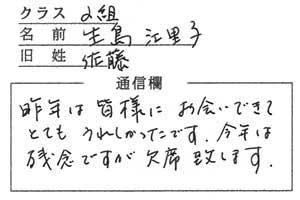 クラス 2組
名前 生島 江里子
旧姓 佐藤
通信欄
昨年は皆様にお会いできて
とてもうれしかったです。今年は
残念ですが欠席致します。